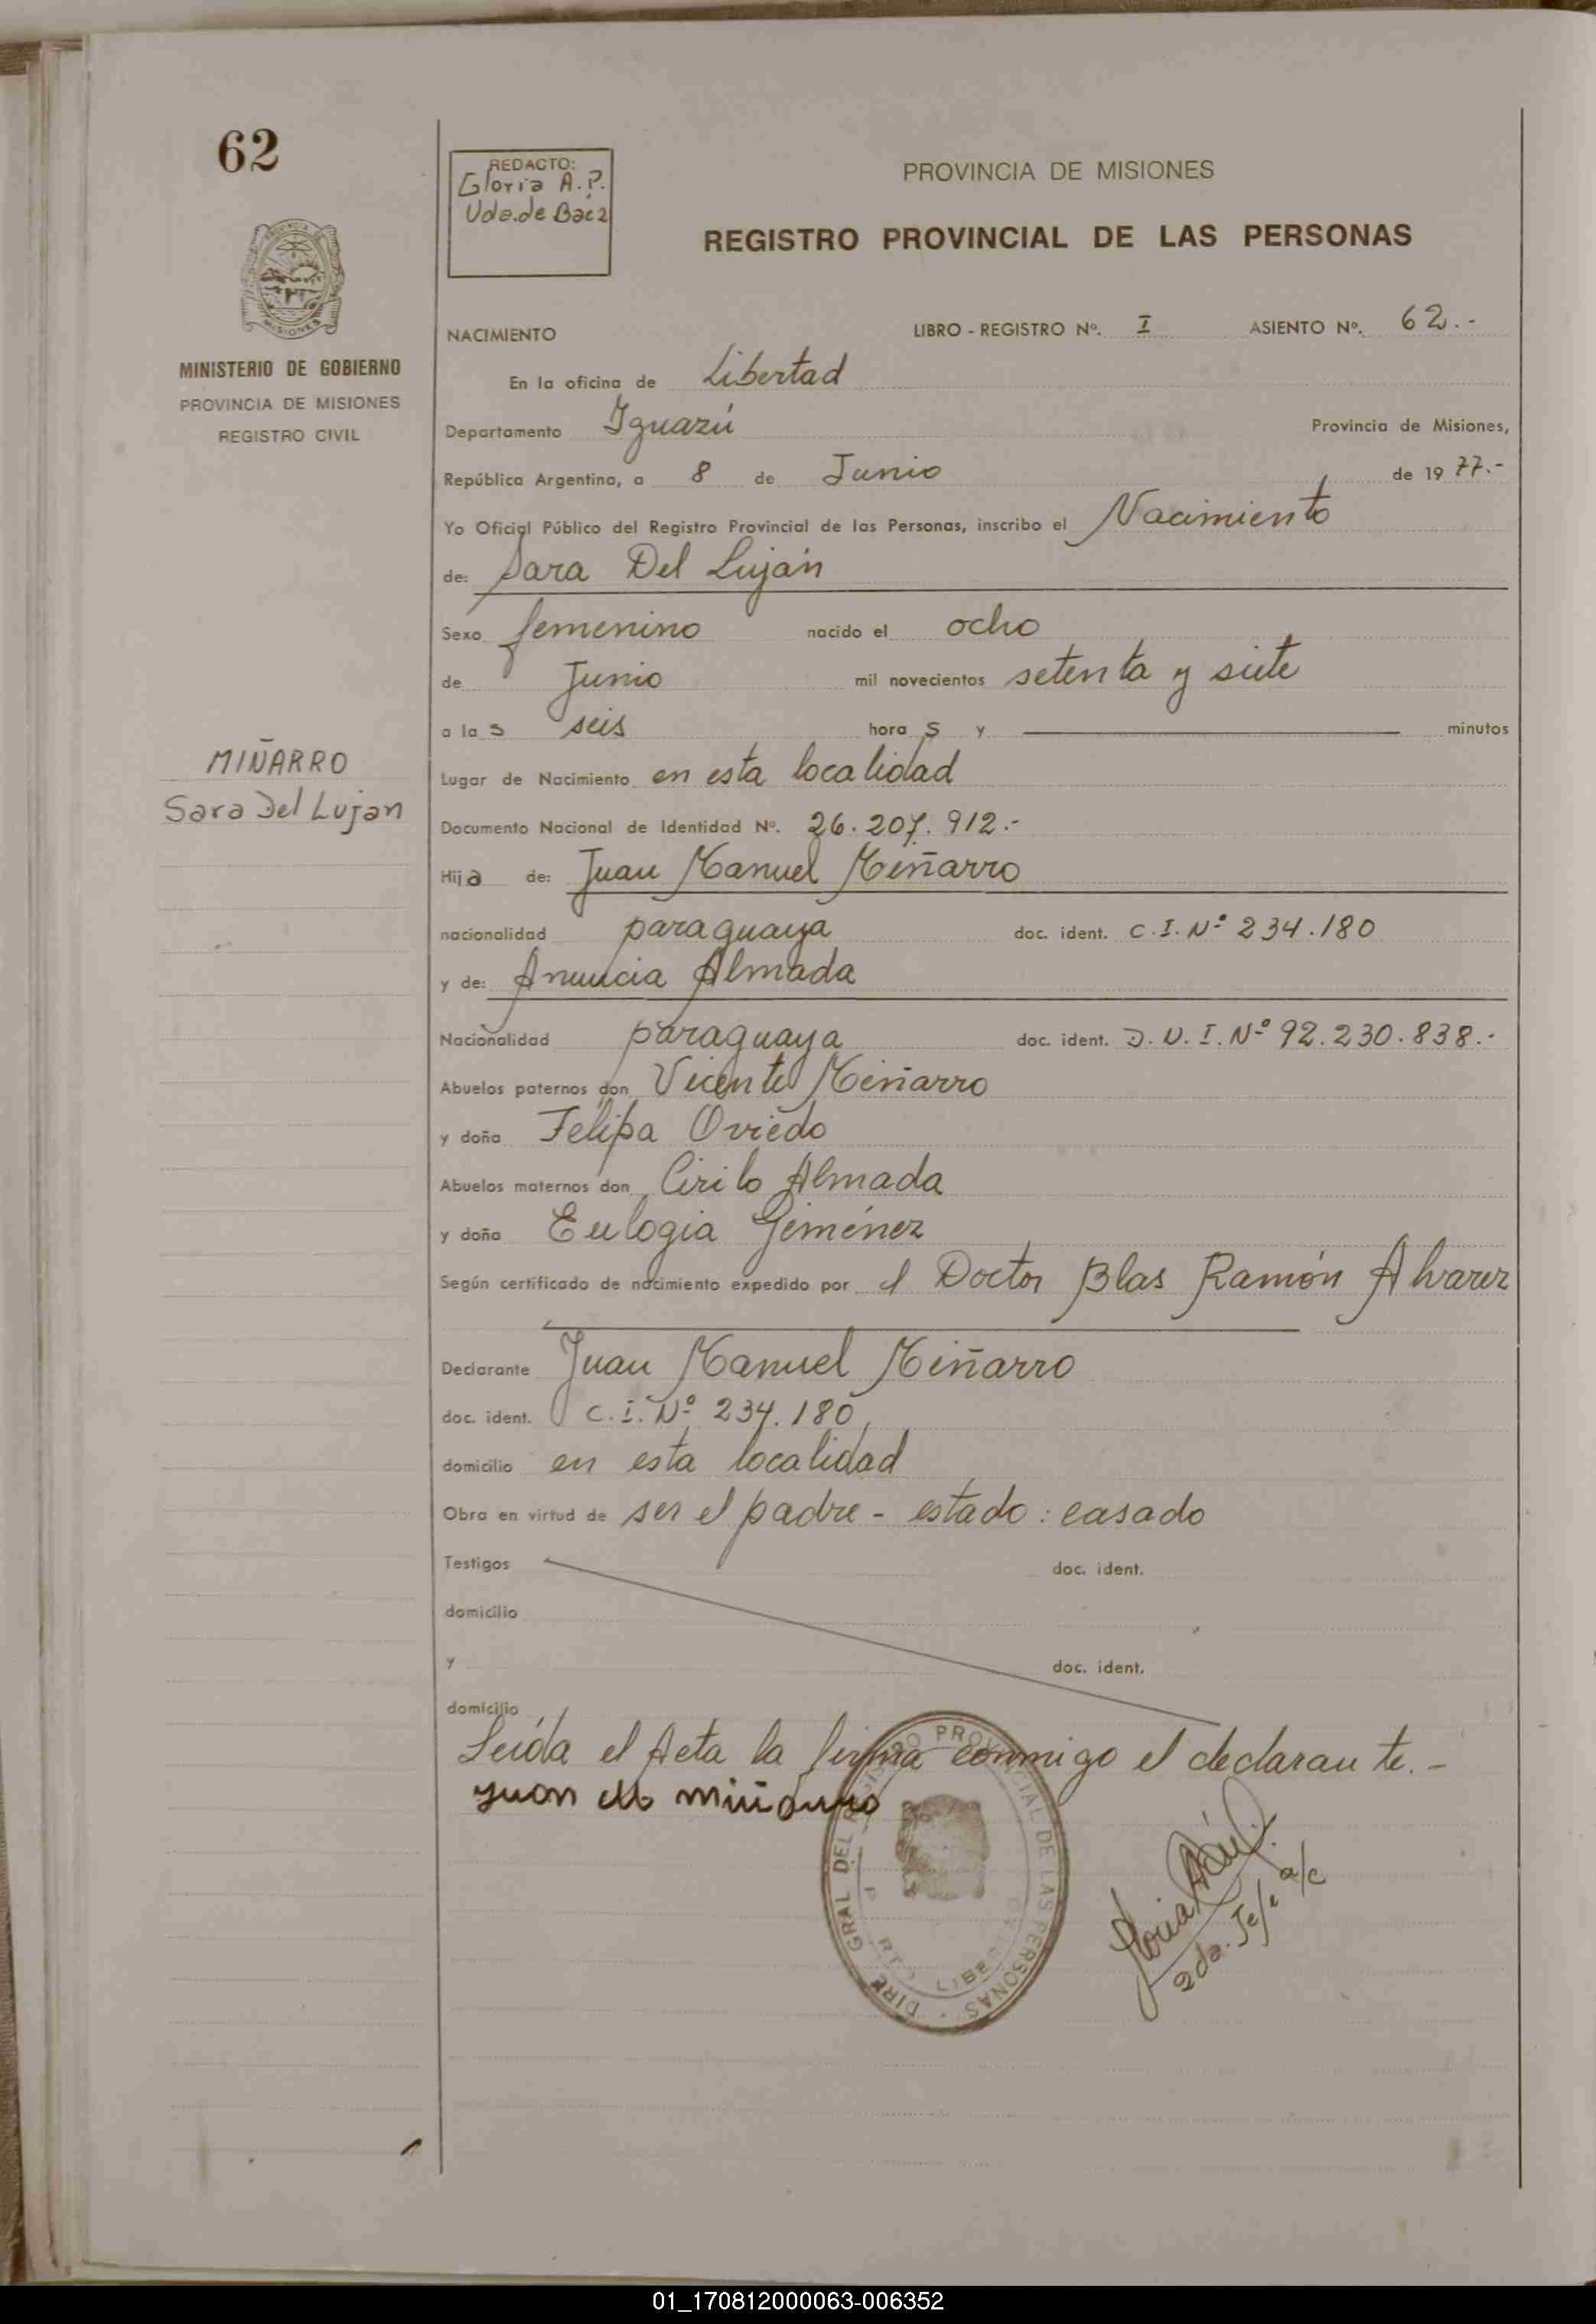 62
REDACTO:
Gloria A.P.
Vda. de Baez
PROVINCIA DE MISIONES
REGISTRO PROVINCIAL DE LAS PERSONAS
MISIONES
MINISTERIO DE GOBIERNO
PROVINCIA DE MISIONES
REGISTRO CIVIL
MIÑARRO
Sara Del Lujan
NACIMIENTO LIBRO - REGISTRO Nº. I ASIENTO Nº. 62.-
En la oficina de Libertad
Departamento Iguazú Provincia de Misiones,
República Argentina, a 8 de Junio de 19 77.-
Yo Oficial Público del Registro Provincial de las Personas, inscribo el Nacimiento
de: Sara Del Luján
Sexo femenino nacido el ocho
de Junio mil novecientos setenta y siete
a la s seis hora s y minutos
Lugar de Nacimiento en esta localidad
Documento Nacional de Identidad Nº. 26.207.912.-
Hija de: Juan Manuel Miñarro
nacionalidad paraguaya doc. ident. C.I. Nº 234.180
y de: Anuncia Almada
Nacionalidad paraguaya doc. ident. D.N.I. Nº 92.230.838.-
Abuelos paternos don Vicente Miñarro
y doña Felipa Oviedo
Abuelos maternos don Cirilo Almada
y doña Eulogia Giménez
Según certificado de nacimiento expedido por el Doctor Blas Ramón Alvarez
Declarante Juan Manuel Miñarro
doc. ident. C.I. Nº 234.180,
domicilio en esta localidad
Obra en virtud de ser el padre - estado: casado
Testigos doc. ident.
domicilio
y doc. ident.
domicilio
Leída el Acta la firma conmigo el declarante.-
Juan M Miñarro
GRAL DEL REGISTRO PROVINCIAL DE LAS PERSONAS
2da. Jefe a/c
01_170812000063-006352